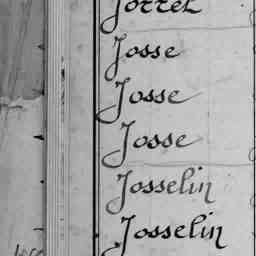 Jorrel
Josse
Josse
Josse
Josselin
Josselin